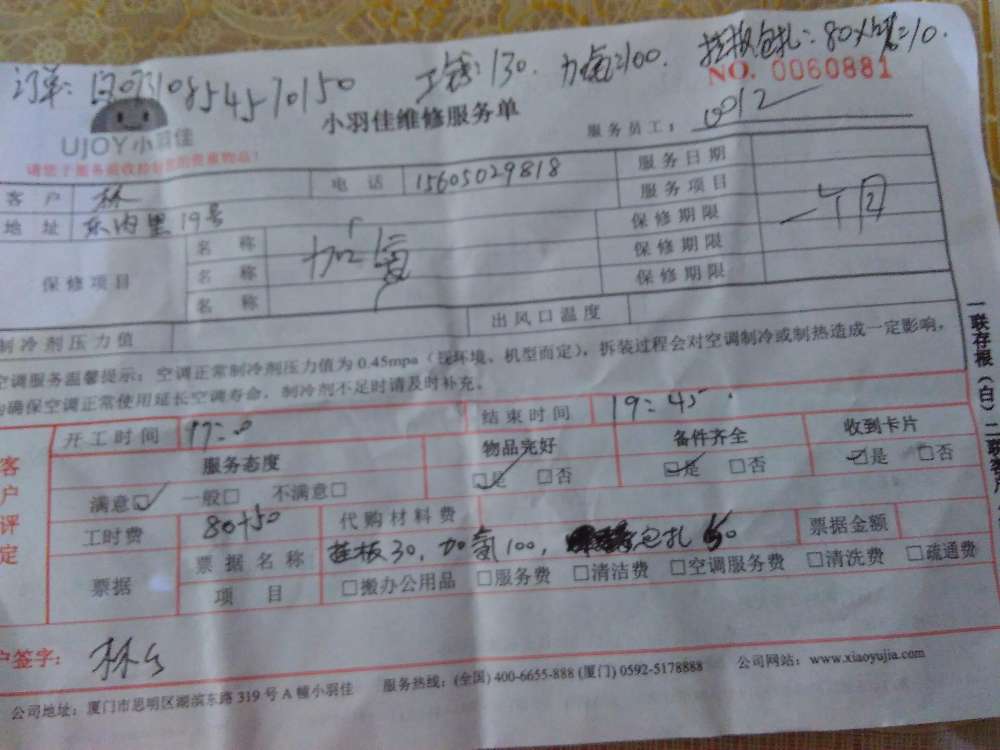 订单: 工钱:130. 加氟=100. 挂板包扎:80 =10.
NO. 0060881
UJOY小羽佳
小羽佳维修服务单
服务员工: 0012
客户 林 电话 15605029818 服务日期
地址 东内里19号 服务项目
保修项目 名称 加氟 保修期限 一个月
名称 保修期限
名称 保修期限
制冷剂压力值 出风口温度
空调服务温馨提示:空调正常制冷剂压力值为 0.45mpa(视环境、机型而定),拆装过程会对空调制冷或制热造成一定影响,
为确保空调正常使用延长空调寿命,制冷剂不足时请及时补充。
客户评定
开工时间 17:0 结束时间 19:45
服务态度 物品完好 备件齐全 收到卡片
满意☑ 一般□ 不满意□ ☑是 □否 ☑是 □否 ☑是 □否
工时费 80+50 代购材料费 票据金额
票据 票据名称 挂板30,加氟100, 包扎50
项目 □搬办公用品 □服务费 □清洁费 □空调服务费 □清洗费 □疏通费
户签字: 林
公司地址:厦门市思明区湖滨东路 319 号 A 幢小羽佳 服务热线:(全国) 400-6655-888 (厦门) 0592-5178888 公司网站:www.xiaoyujia.com
一联存根(白)二联客户